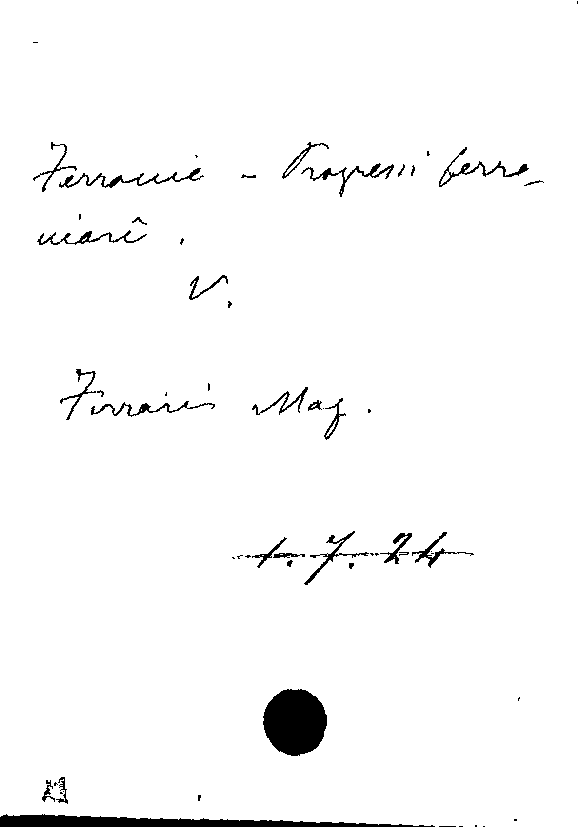 Ferrovie - Progressi ferro-
viarî.
V.
Ferraris Mag.
1.7.24